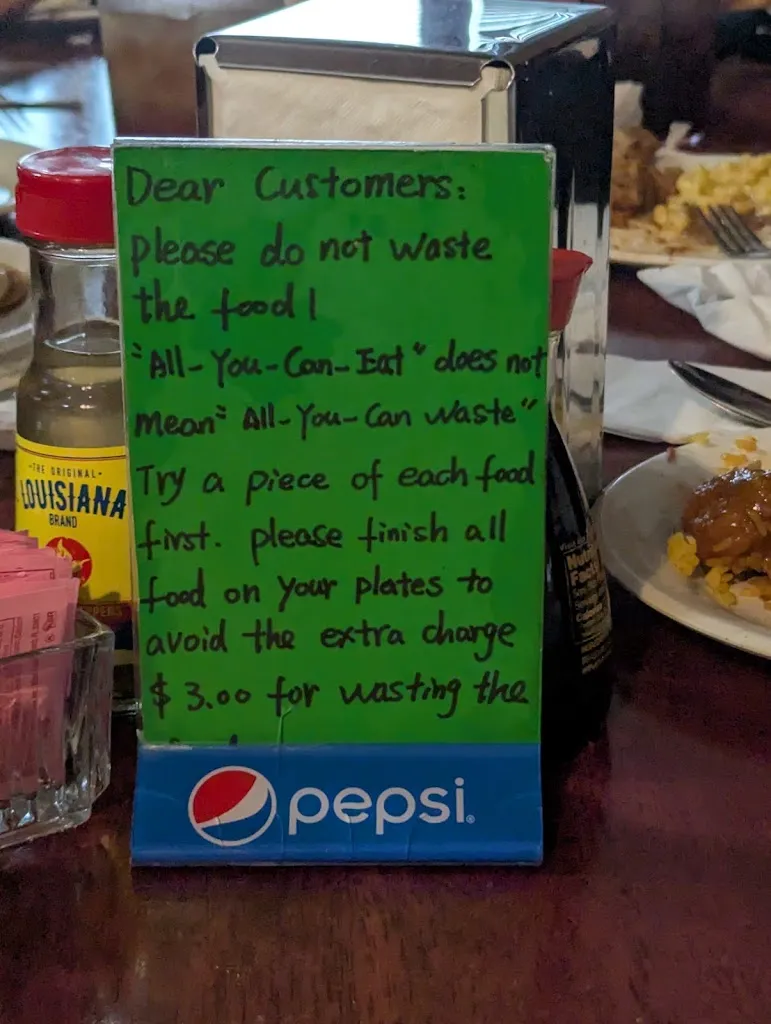 Dear Customers:
please do not waste
the food!
"All-You-Can-Eat" does not
mean "All-You-Can waste"
Try a piece of each food
first. please finish all
food on your plates to
avoid the extra charge
$3.00 for wasting the
pepsi
-THE ORIGINAL-
LOUISIANA
BRAND